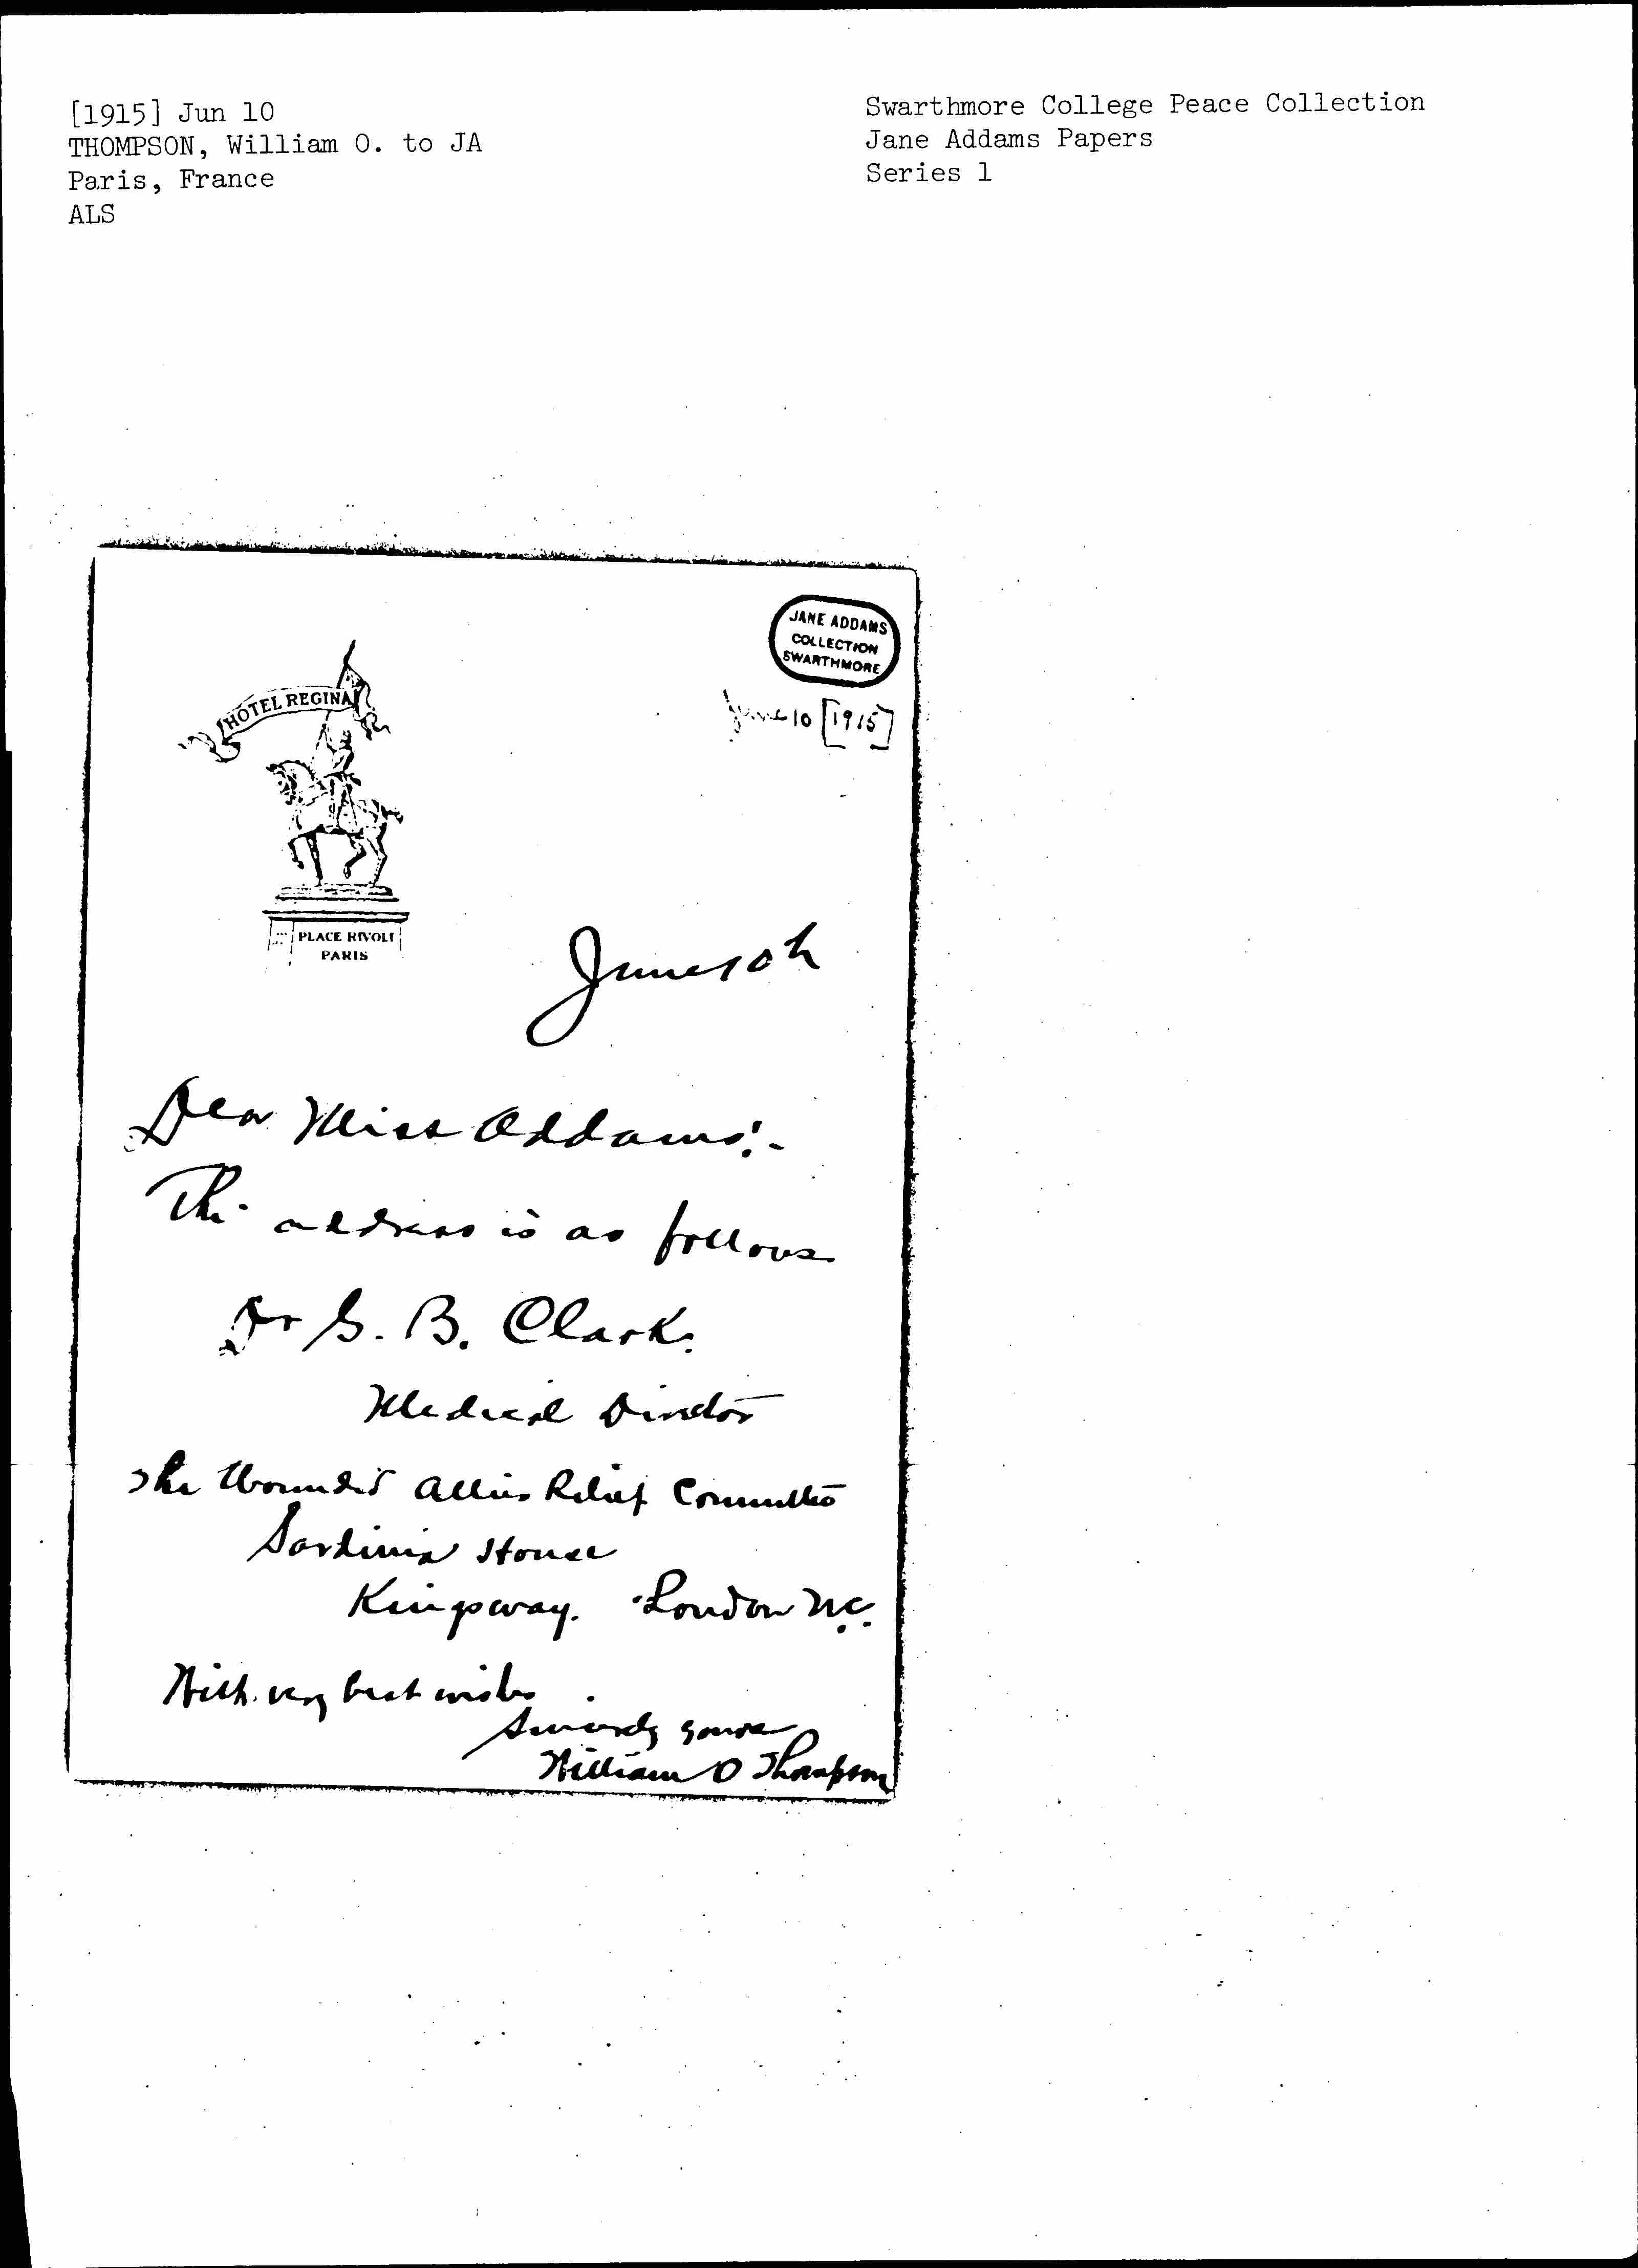 [1915] Jun 10
THOMPSON, William O. to JA
Paris, France
ALS
Swarthmore College Peace Collection
Jane Addams Papers
Series 1
JANE ADDAMS
COLLECTION
SWARTHMORE
June 10 [1915]
HOTEL REGINA
PLACE RIVOLI
PARIS
June 10th
Dear Miss Addams:-
The address is as follows
Dr G. B. Clark.
Medical Director
The Wounded Allies Relief Committee
Sardinia House
Kingsway. London W.C.
With very best wishes.
Sincerely yours
William O Thompson